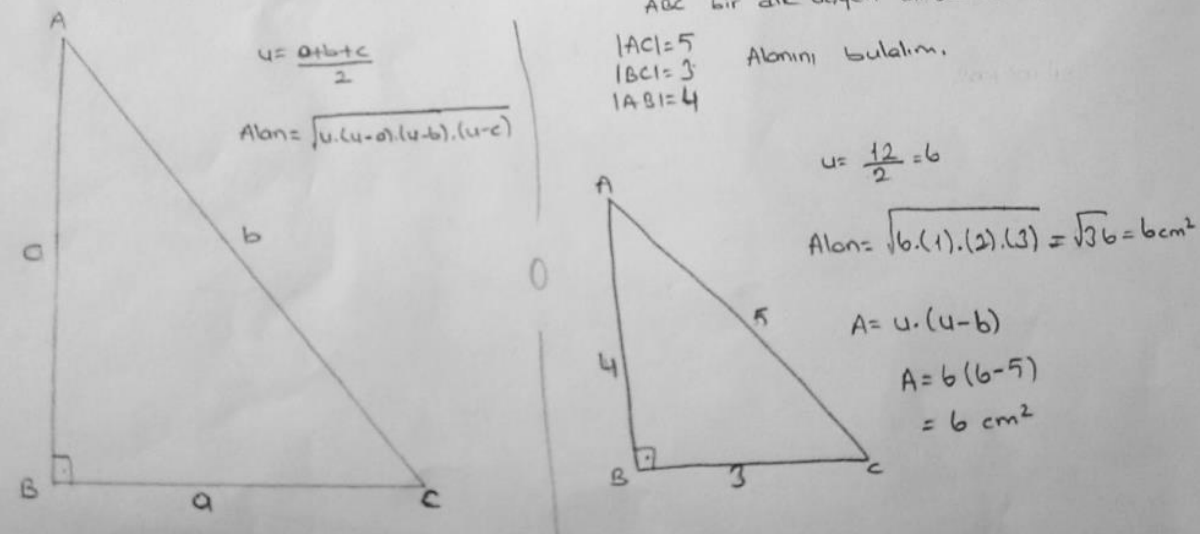 A
u = a+b+c / 2
Alan = √u.(u-a).(u-b).(u-c)
c
b
B
a
C
ABC bir
|AC|=5
|BC|=3
|AB|=4
Alanını bulalım.
u = 12 / 2 = 6
Alan = √6.(1).(2).(3) = √36 = 6cm²
A
5
4
B
3
C
A = u.(u-b)
A = 6(6-5)
= 6 cm²